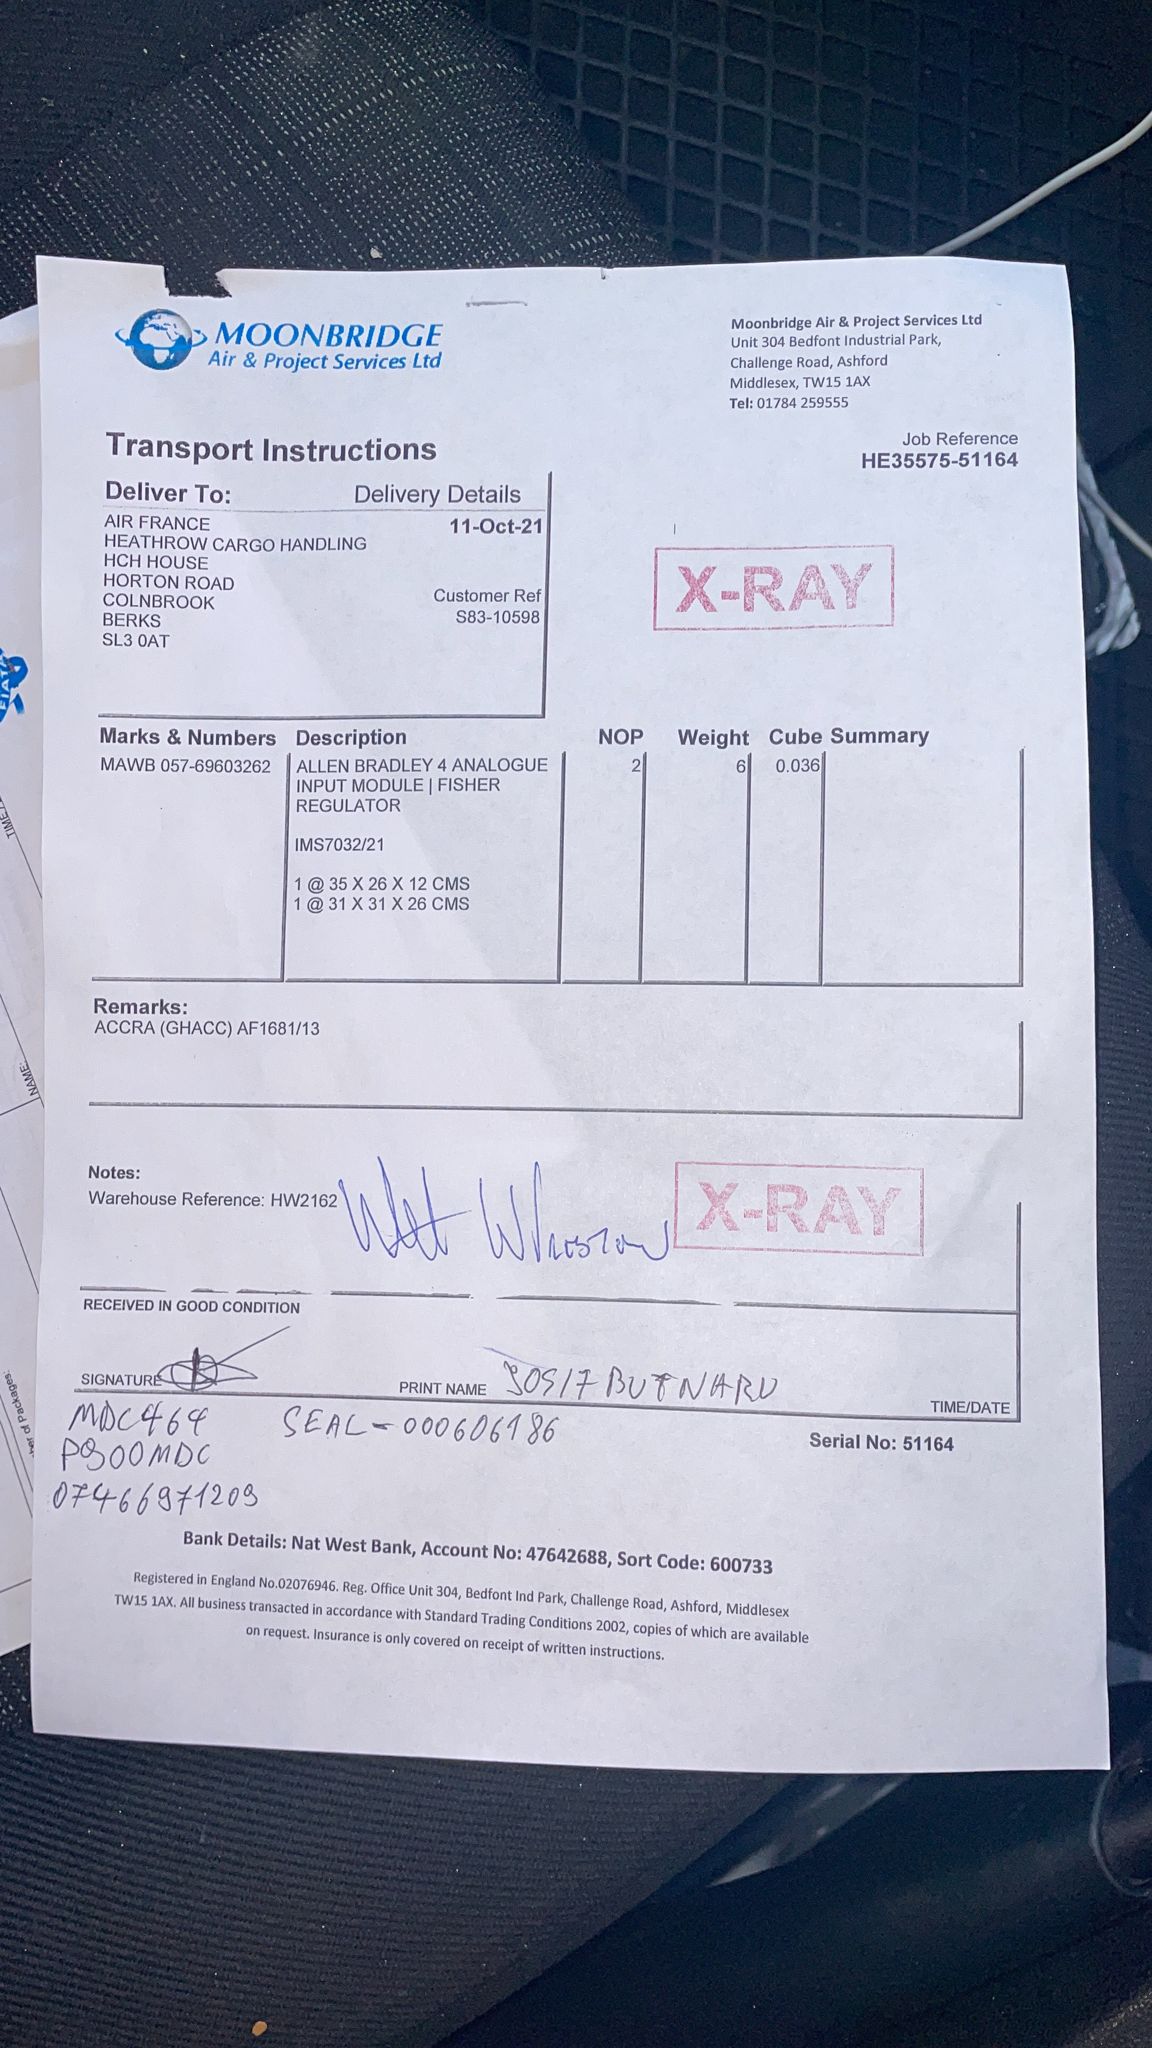 MOONBRIDGE
Air & Project Services Ltd
Moonbridge Air & Project Services Ltd
Unit 304 Bedfont Industrial Park,
Challenge Road, Ashford
Middlesex, TW15 1AX
Tel: 01784 259555
Transport Instructions
Job Reference
HE35575-51164
Deliver To: Delivery Details
AIR FRANCE 11-Oct-21
HEATHROW CARGO HANDLING
HCH HOUSE
HORTON ROAD
COLNBROOK Customer Ref
BERKS S83-10598
SL3 0AT
X-RAY
Marks & Numbers Description NOP Weight Cube Summary
MAWB 057-69603262 ALLEN BRADLEY 4 ANALOGUE 2 6 0.036
INPUT MODULE | FISHER
REGULATOR
IMS7032/21
1 @ 35 X 26 X 12 CMS
1 @ 31 X 31 X 26 CMS
Remarks:
ACCRA (GHACC) AF1681/13
Notes:
Warehouse Reference: HW2162
X-RAY
RECEIVED IN GOOD CONDITION
SIGNATURE PRINT NAME BUTNARU TIME/DATE
MDC464 SEAL-000606186
Serial No: 51164
P900MDC
07466971209
Bank Details: Nat West Bank, Account No: 47642688, Sort Code: 600733
Registered in England No.02076946. Reg. Office Unit 304, Bedfont Ind Park, Challenge Road, Ashford, Middlesex
TW15 1AX. All business transacted in accordance with Standard Trading Conditions 2002, copies of which are available
on request. Insurance is only covered on receipt of written instructions.
NAME: